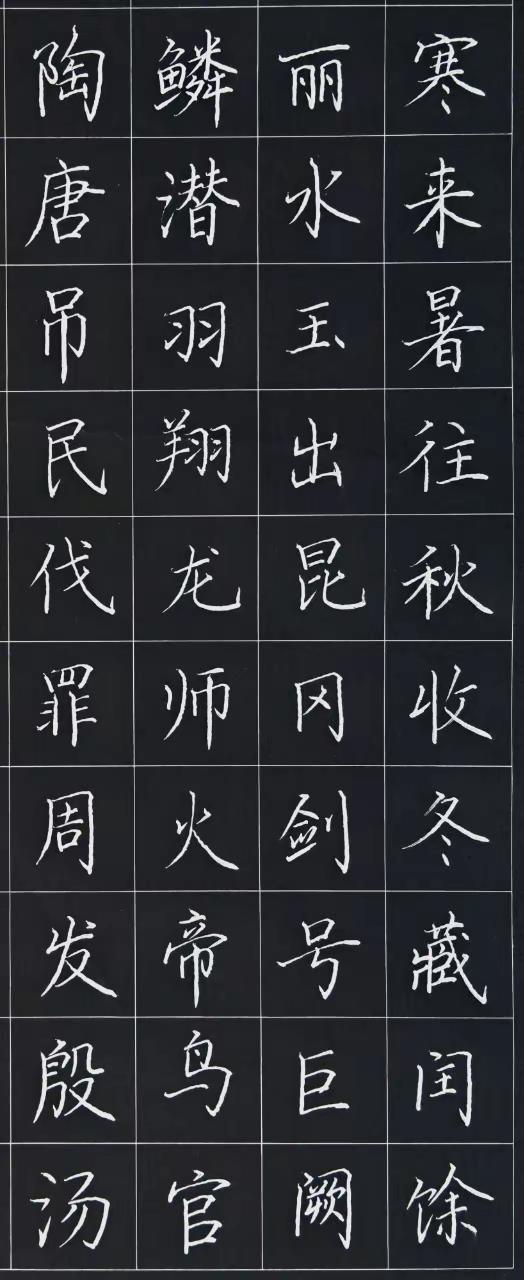 寒来暑往秋收冬藏闰馀
丽水玉出昆冈剑号巨阙
鳞潜羽翔龙师火帝鸟官
陶唐吊民伐罪周发殷汤